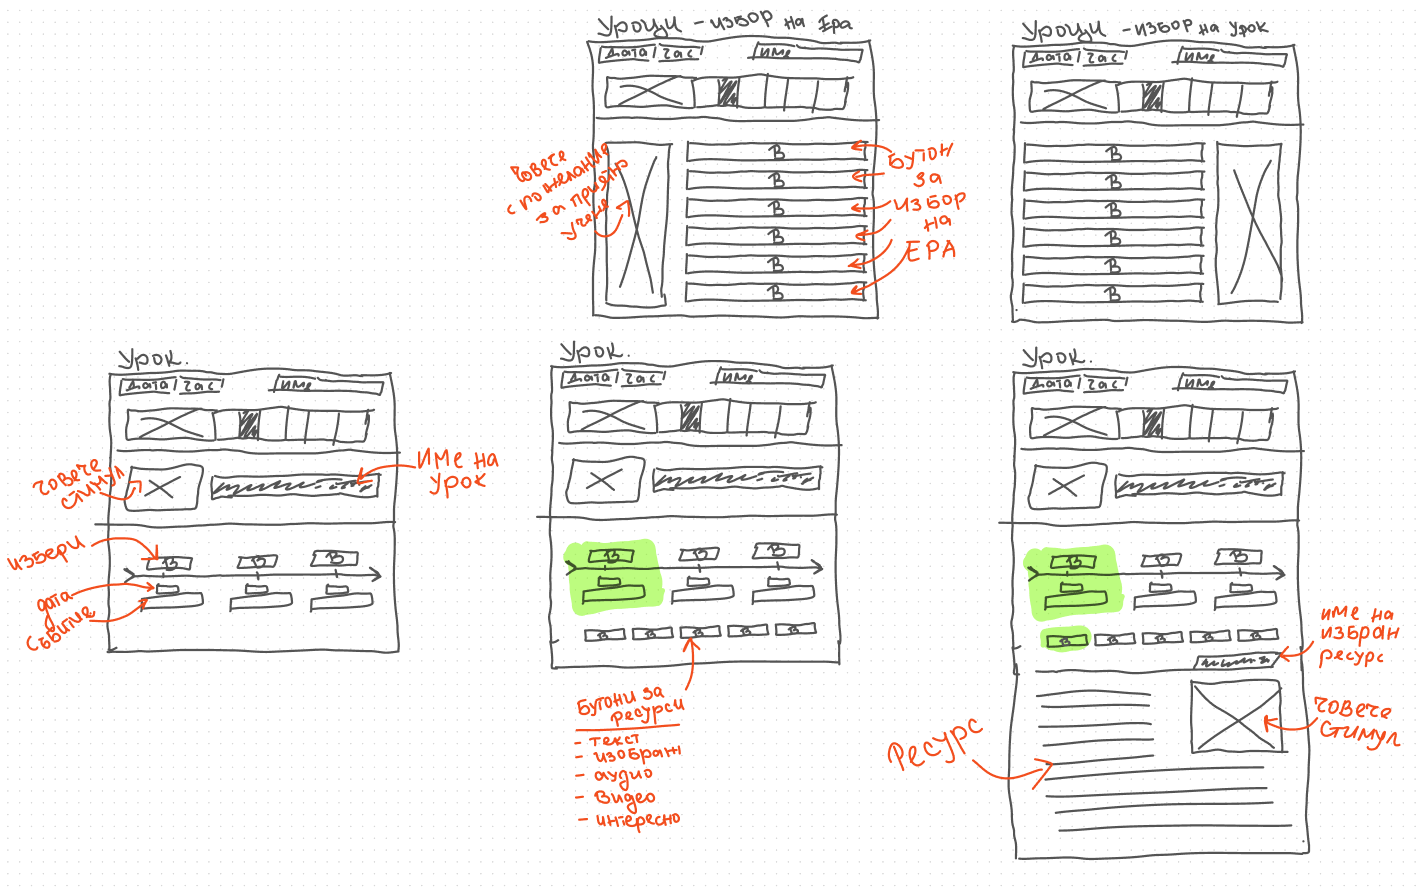 Уроци - избор на Ера
Дата / час
име
B
B
B
B
B
B
Човече
с пожелания
за приятно
учене
Бутон
за
избор
на
ЕРА
Уроци - избор на Урок
Дата / час
име
B
B
B
B
B
B
Урок.
Дата / час
име
Човече
стимул
име на
урок
избери
B
B
B
дата
събитие
Урок.
Дата / час
име
B
B
B
B
B
B
B
B
Бутони за
ресурси
- текст
- изображ
- аудио
- видео
- интересно
Урок.
Дата / час
име
B
B
B
B
B
B
B
B
име на
избран
ресурс
Човече
стимул
Ресурс